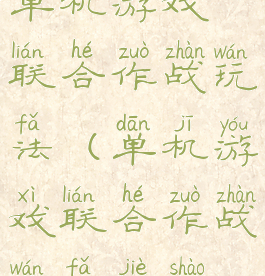 单机游戏
lián hé zuò zhàn wán
联合作战玩
fǎ dān jī yóu
法（单机游
xì lián hé zuò zhàn
戏联合作战
wán fǎ jiè shào